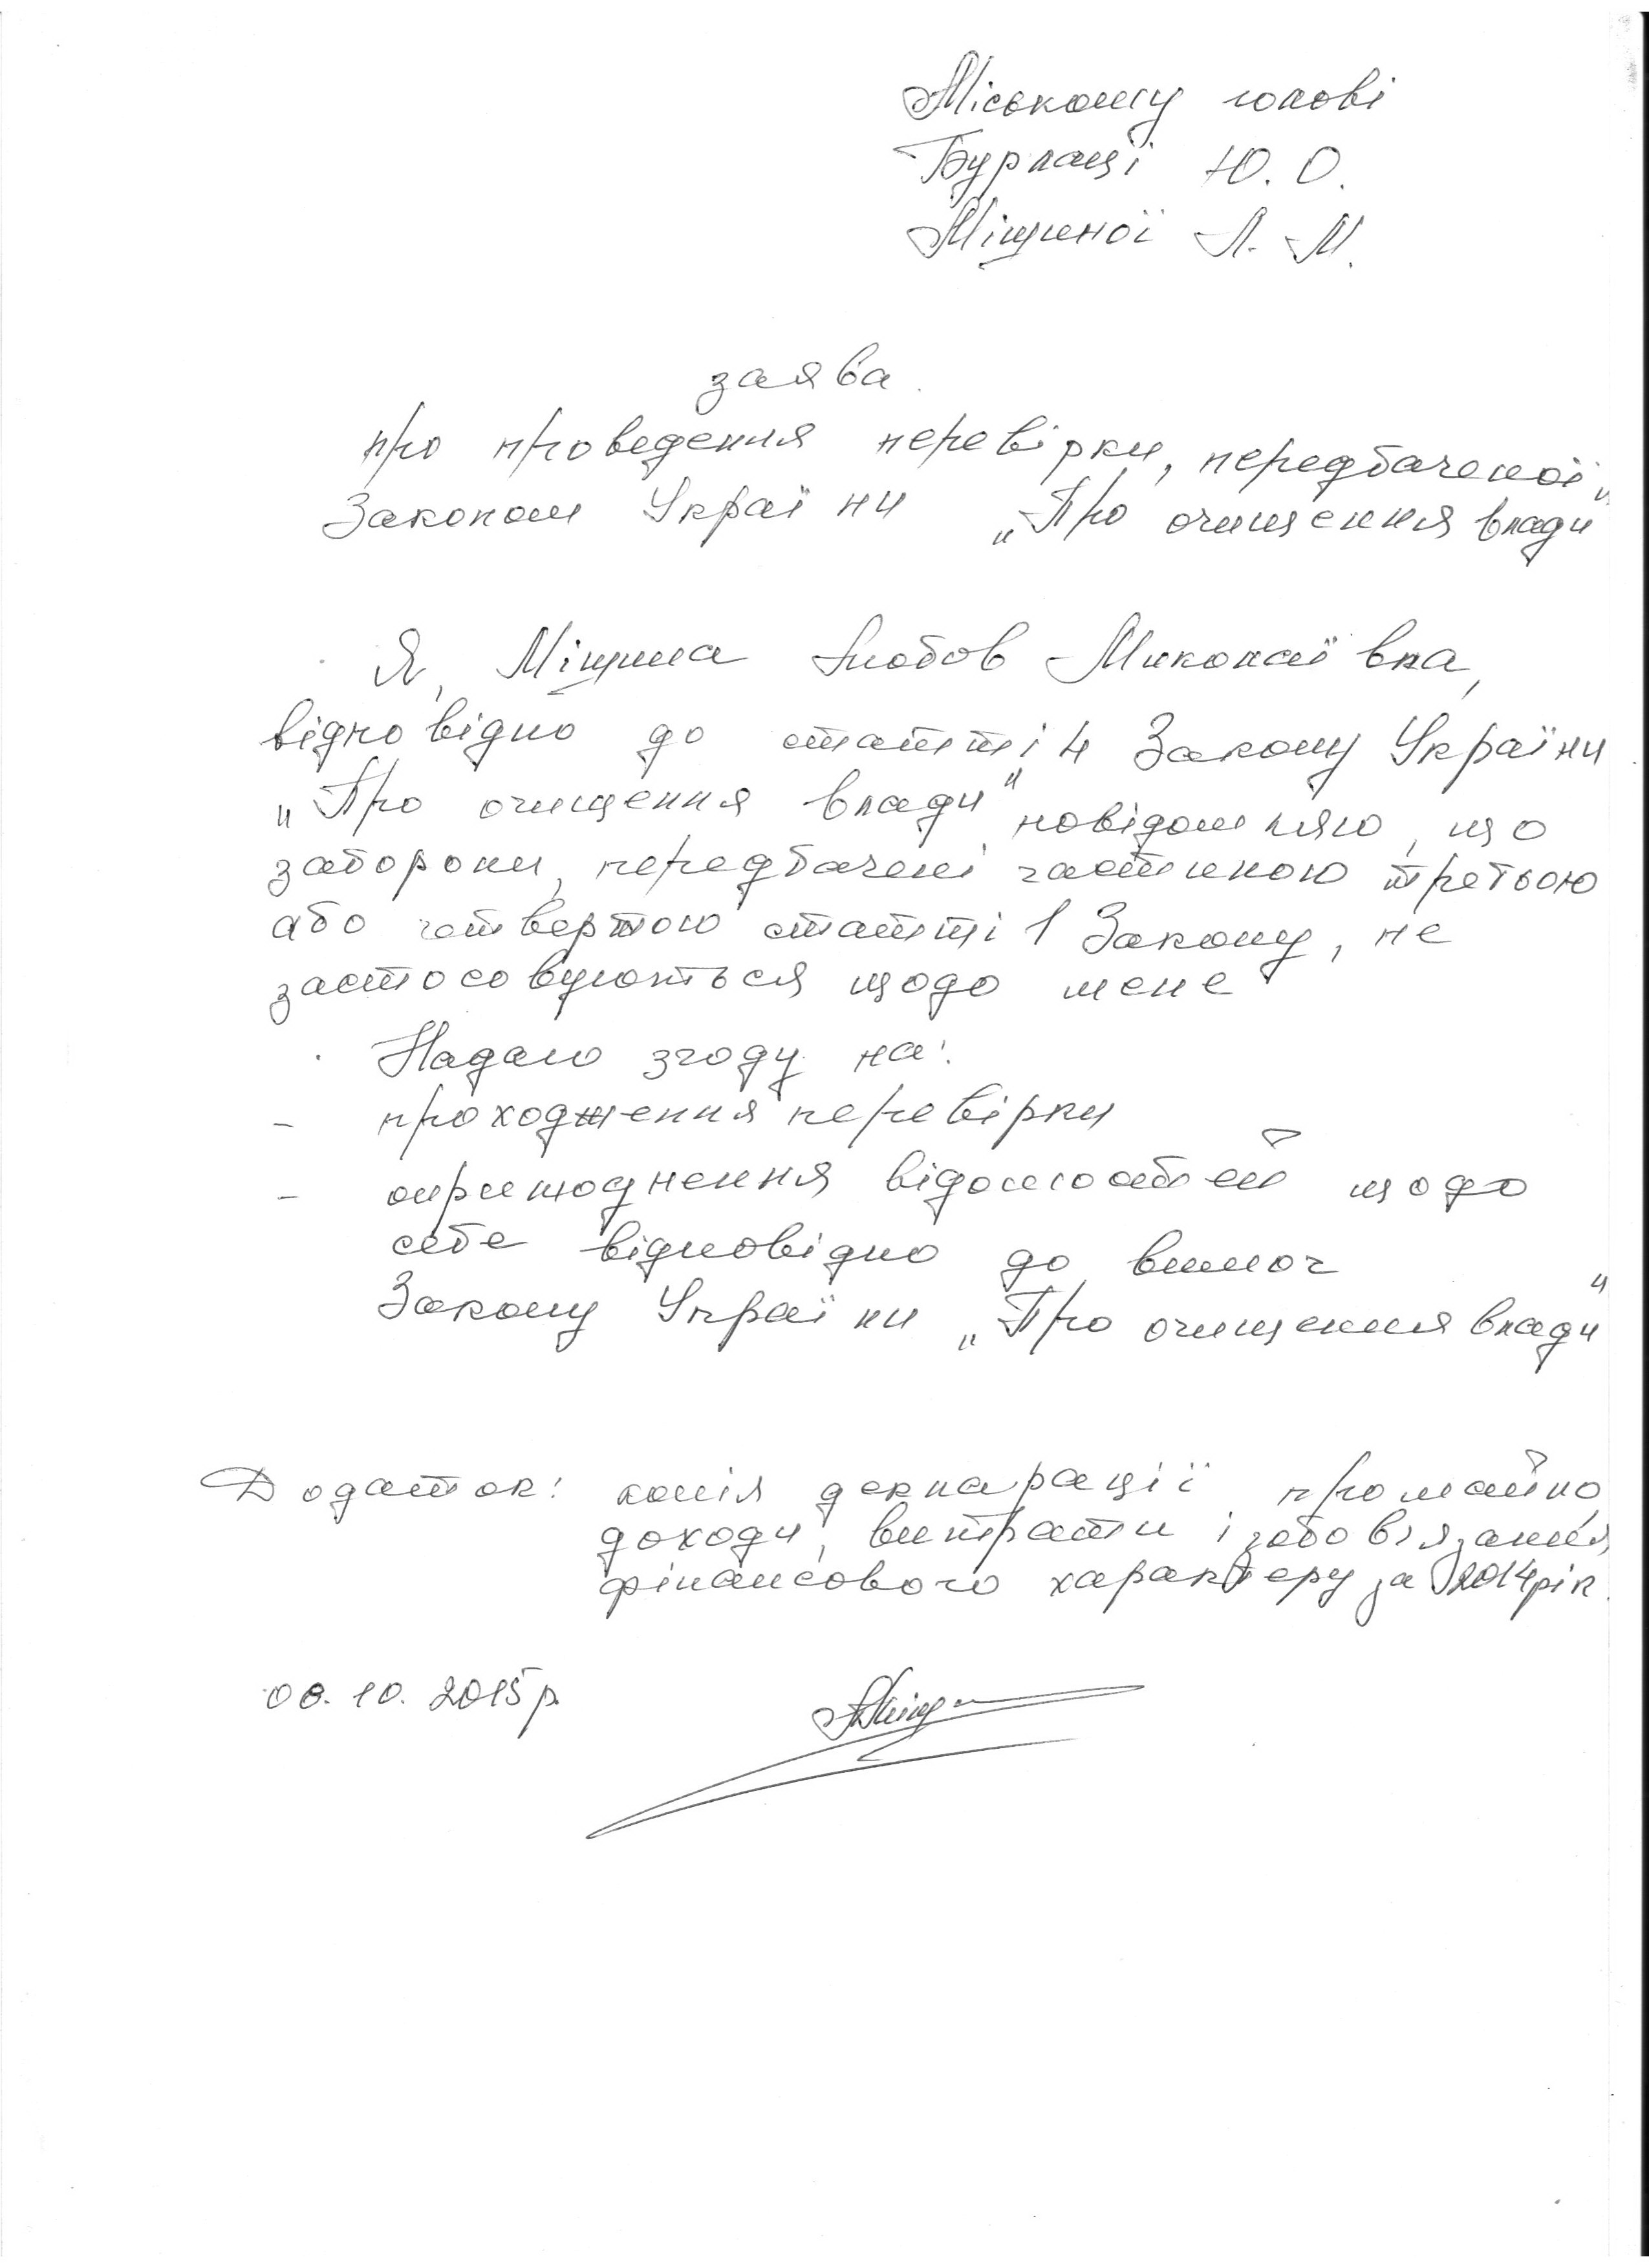 Міському голові
Бурлаці Ю. О.
Міщиної Л. М.
заява
про проведення перевірки, передбаченої
Законом України „Про очищення влади"
Я, Міщина Любов Миколаївна,
відповідно до статті 4 Закону України
„Про очищення влади" повідомляю, що
заборони, передбачені частиною третьою
або четвертою статті 1 Закону, не
застосовуються щодо мене
Надаю згоду на:
- проходження перевірки
- оприлюднення відомостей щодо
себе відповідно до вимог
Закону України „Про очищення влади"
Додаток: копія декларації про майно,
доходи, витрати і зобов'язання
фінансового характеру за 2014 рік.
08.10.2015 р.